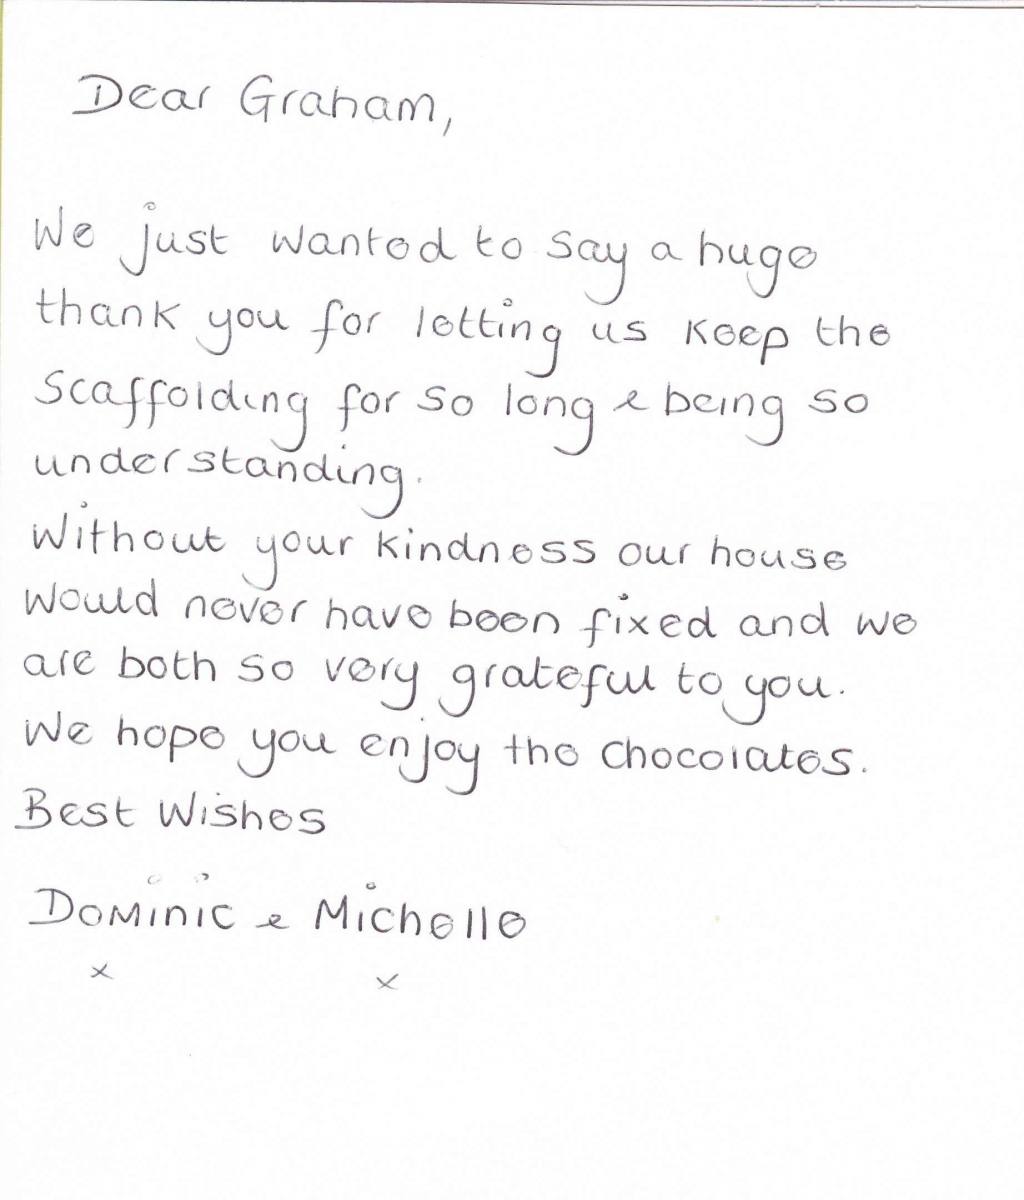 Dear Graham,
We just wanted to say a huge
thank you for letting us keep the
scaffolding for so long & being so
understanding.
Without your kindness our house
would never have been fixed and we
are both so very grateful to you.
We hope you enjoy the chocolates.
Best Wishes
Dominic & Michelle
x x